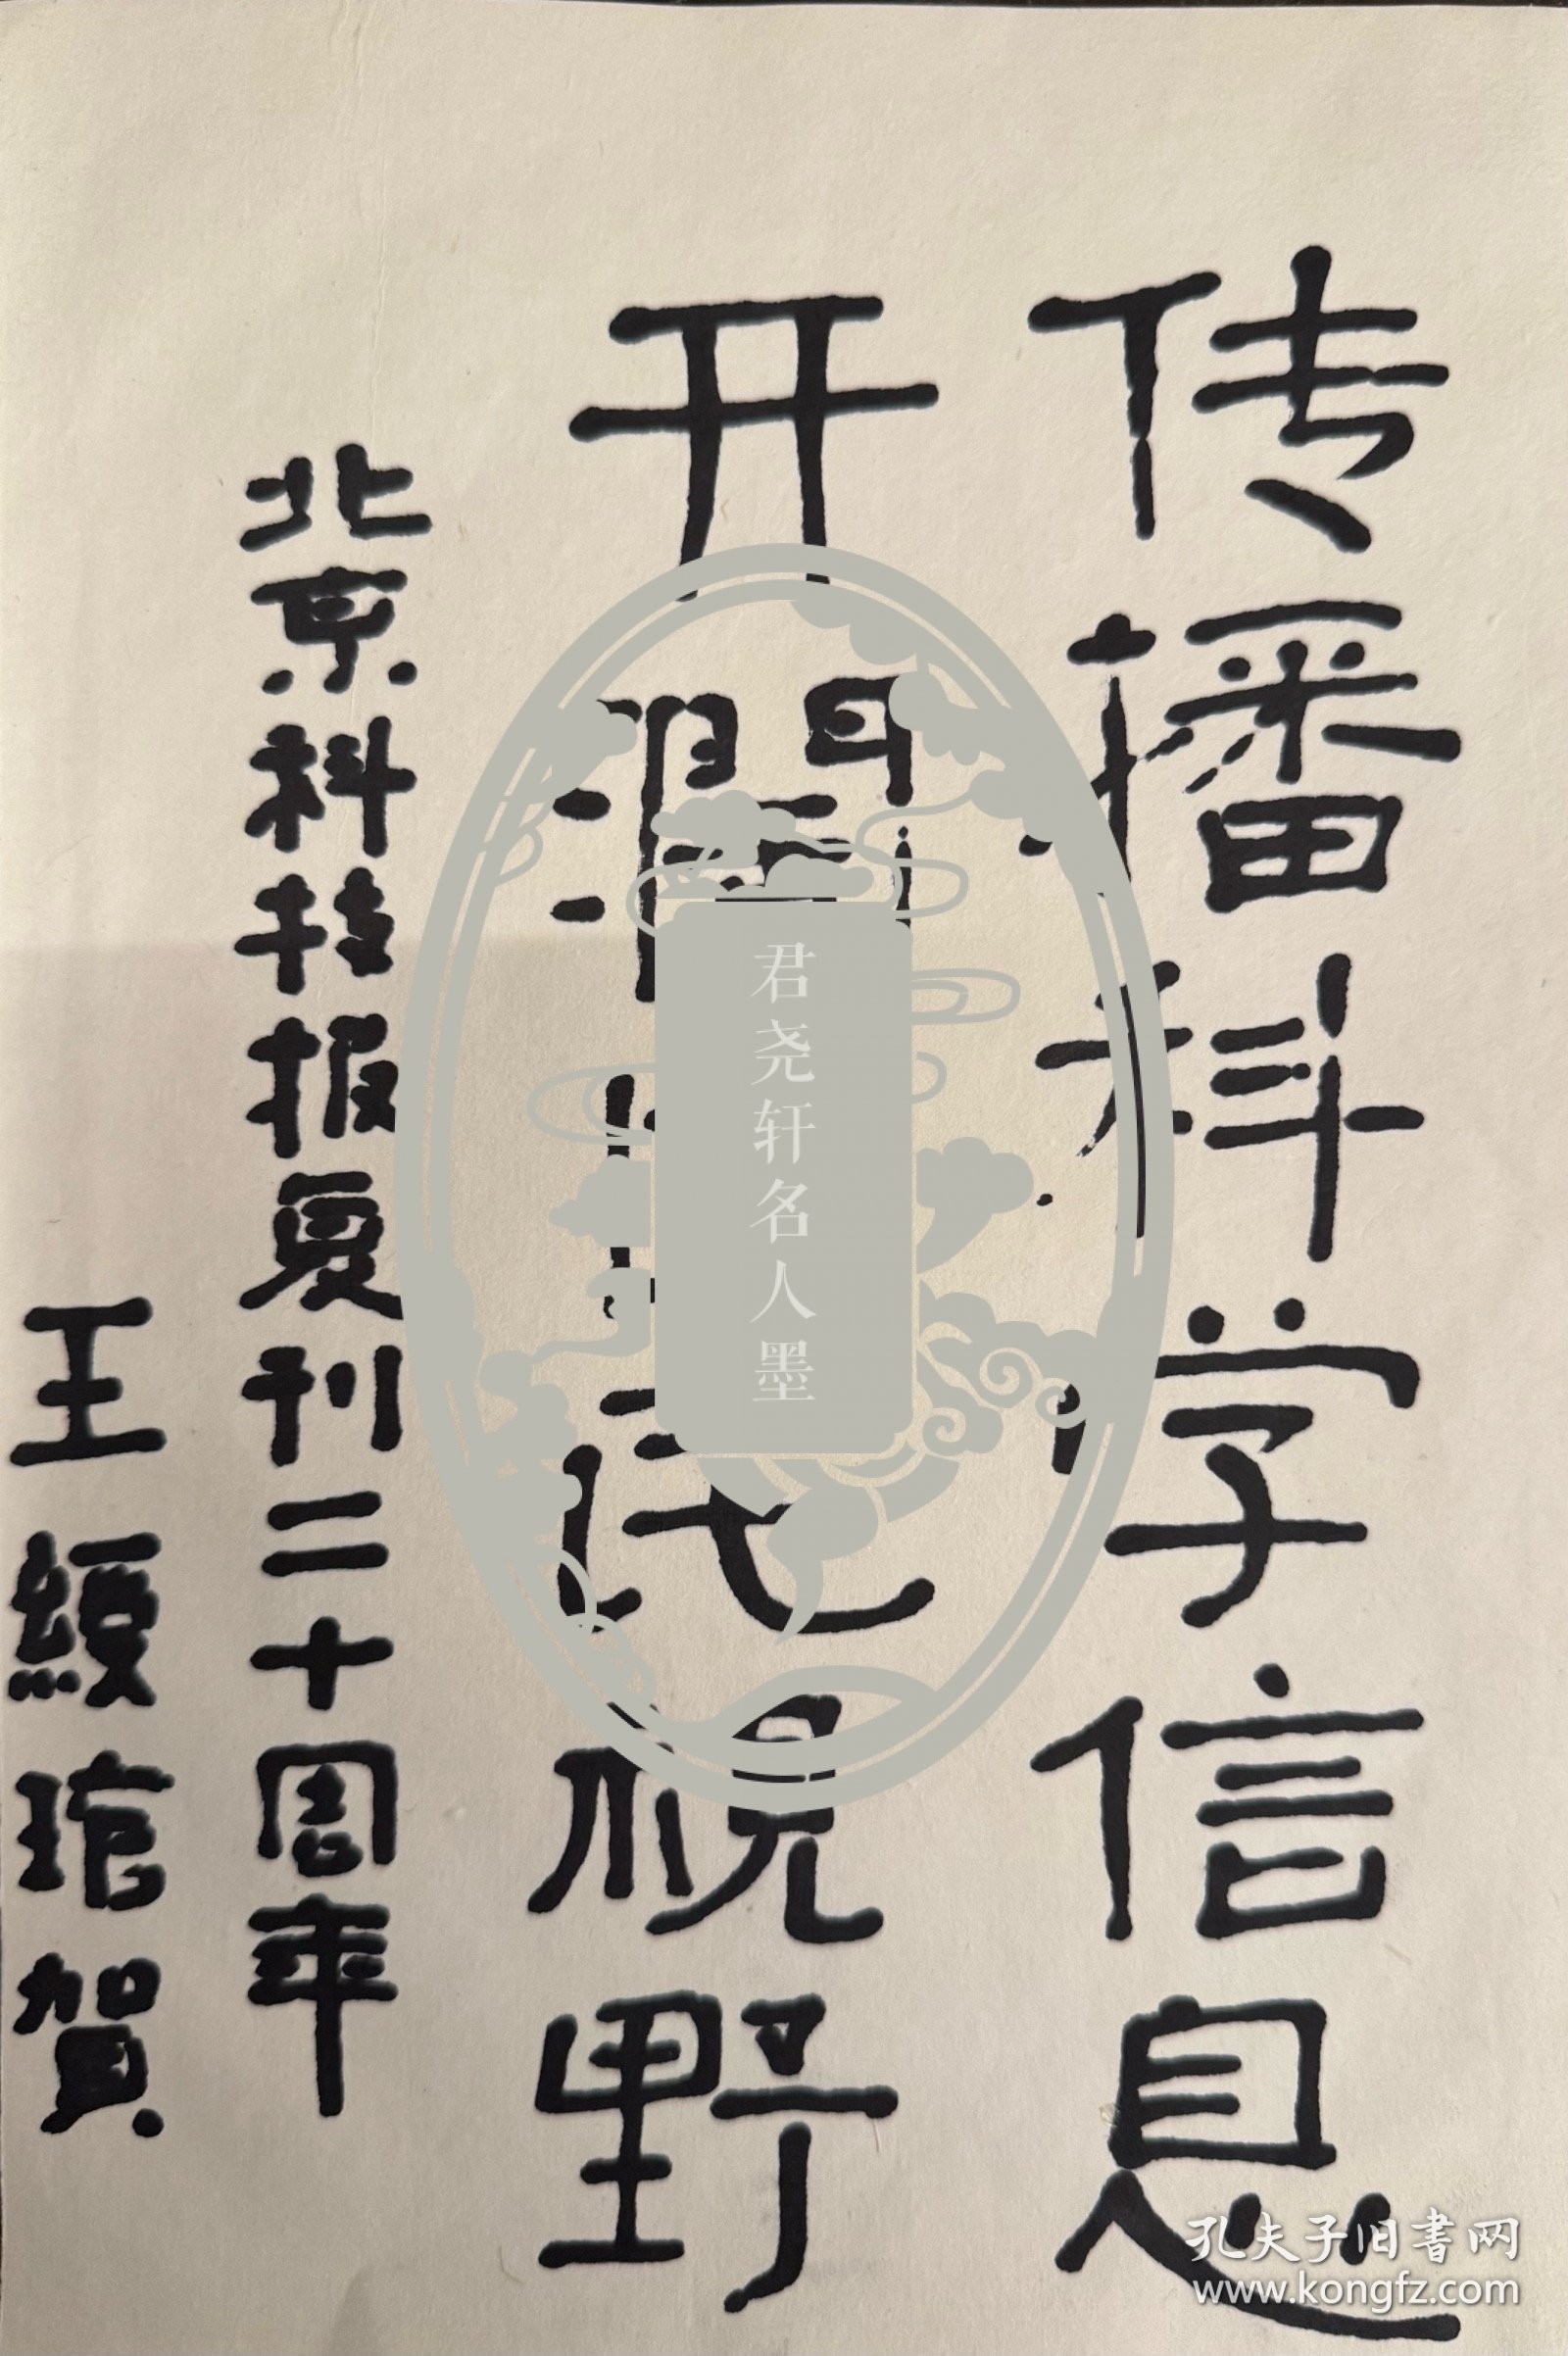 传播科学信息
开濶民视野
北京科技报复刊二十周年
王綬琯賀
君尧轩名人墨
孔夫子旧书网
www.kongfz.com